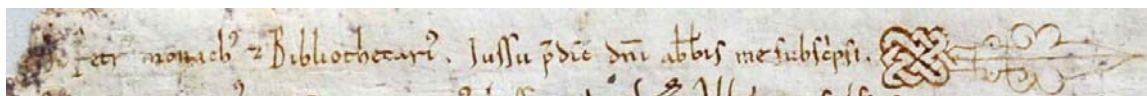 Petr monachꝰ ⁊ Bibliothecariꝰ. Iussu p̄dic̄ dn̄i ab̄bis me subscͥpsi.